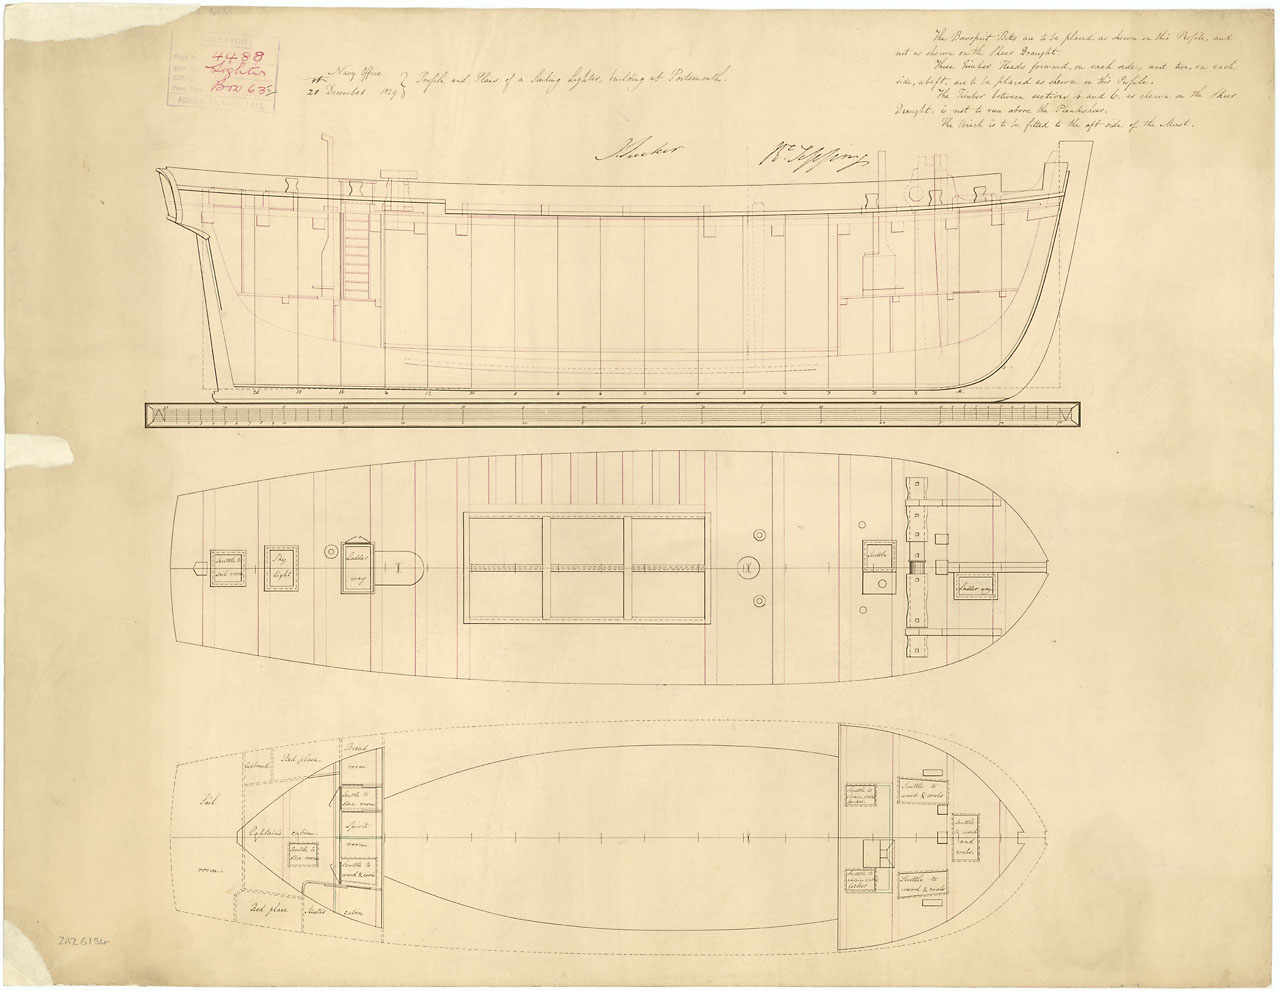 CURATOR
4488
Lighter
Box 63
Navy Office
21 December 1829
Profile and Plans of a Sailing Lighter, building at Portsmouth.
The Bowsprit Bitts are to be placed as shewn on this Profile, and
not as shewn on the Sheer Draught.
Three Timber Heads forward, on each side, and two, on each
side, abaft, are to be placed as shewn on this Profile.
The Timber between sections 4 and 6. as shewn on the Sheer
Draught. is not to run above the Planksheer.
The Winch is to be fitted to the aft side of the Mast.
J. Tucker
Rt. Seppings
Scuttle to
sail room
Sky
light
Ladder
way
Scuttle
Ladder way
Sail
room.
Cupboard
Bed place.
Bread
room
Scuttle to
store room
Captains cabin
Spirit
room
Scuttle to
store room
Scuttle to
wood & coals
Bed place
Mates cabin
Scuttle to
chain cable
locker
Scuttle to
wood & coals
Scuttle
to wood
and
coals.
Scuttle to
chain cable
locker
Scuttle to
wood & coals
ZAZ6184